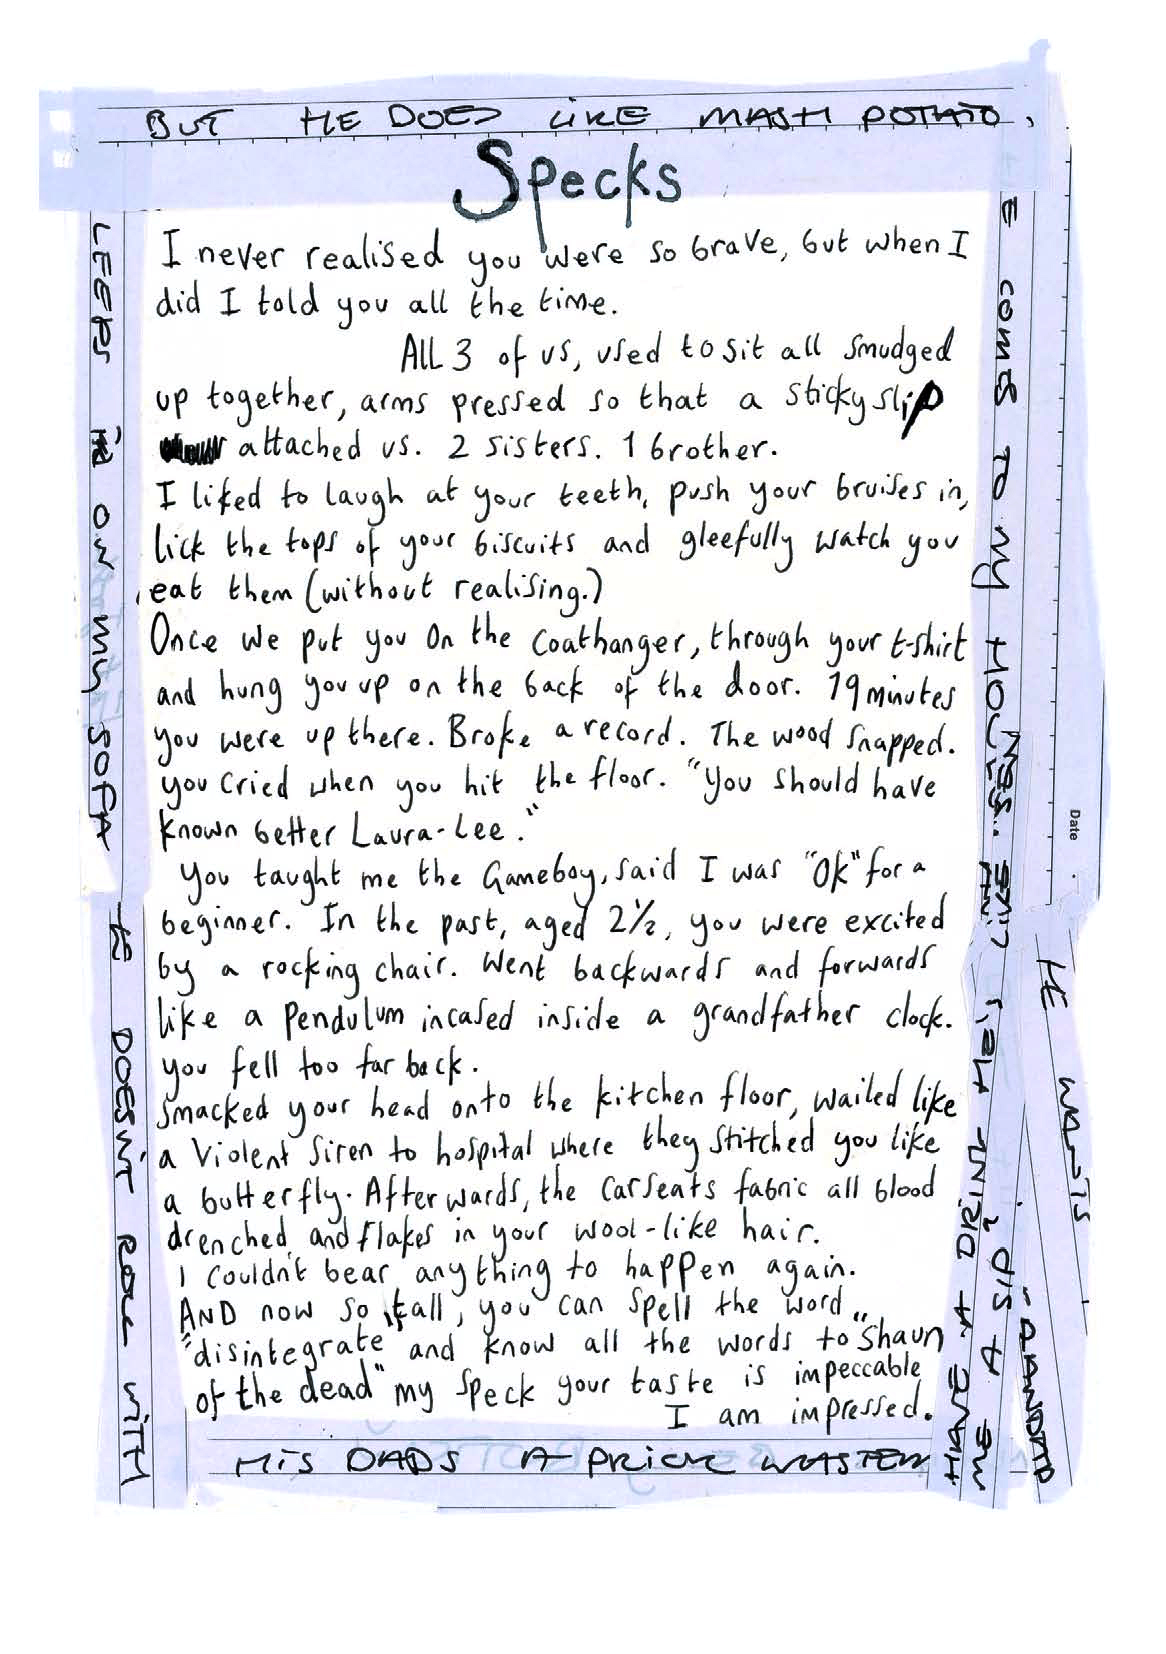 BUT HE DOES LIKE MASH POTATO.
Specks
I never realised you were so brave, but when I
did I told you all the time.
All 3 of us, used to sit all smudged
up together, arms pressed so that a sticky slip
attached us. 2 sisters. 1 brother.
I liked to laugh at your teeth, push your bruises in,
lick the tops of your biscuits and gleefully watch you
eat them (without realising.)
Once we put you on the coathanger, through your t-shirt
and hung you up on the back of the door. 19 minutes
you were up there. Broke a record. The wood snapped.
you cried when you hit the floor. "You should have
known better Laura-Lee."
You taught me the Gameboy, said I was "Ok" for a
beginner. In the past, aged 2½, you were excited
by a rocking chair. Went backwards and forwards
like a pendulum incased inside a grandfather clock.
you fell too far back.
Smacked your head onto the kitchen floor, wailed like
a violent siren to hospital where they stitched you like
a butterfly. Afterwards, the carseats fabric all blood
drenched and flakes in your wool-like hair.
I couldn't bear anything to happen again.
AND now so tall, you can spell the word
"disintegrate" and know all the words to "Shaun
of the dead" my speck your taste is impeccable
I am impressed.
LEEPS IN ON MY SOFA
HE DOESN'T ROLL WITH
HIS DADS A PRICK WASTEM
E COMES TO MY HOUSE
HAVE A DRINK, HE'S
ME A SIP,
HE WANTS
GRANDAD
Date